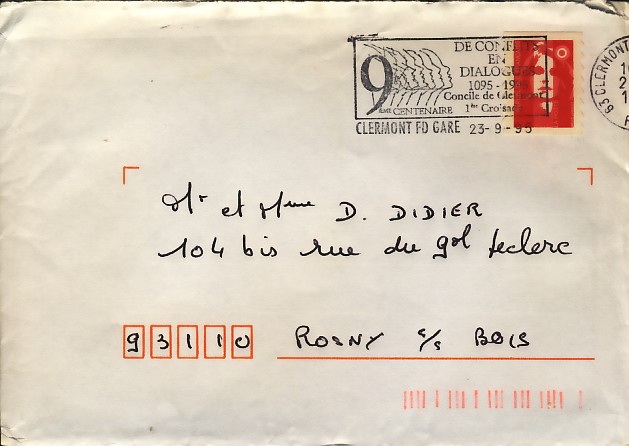 DE CONFLITS
EN
DIALOGUES
1095 - 1995
Concile de Clermont
1ère Croisade
9
ÈME CENTENAIRE
CLERMONT FD GARE 23-9-95
63 CLERMONT
Mr et Mme D. DIDIER
104 bis rue du gal Leclerc
93110 ROSNY s/s BOIS